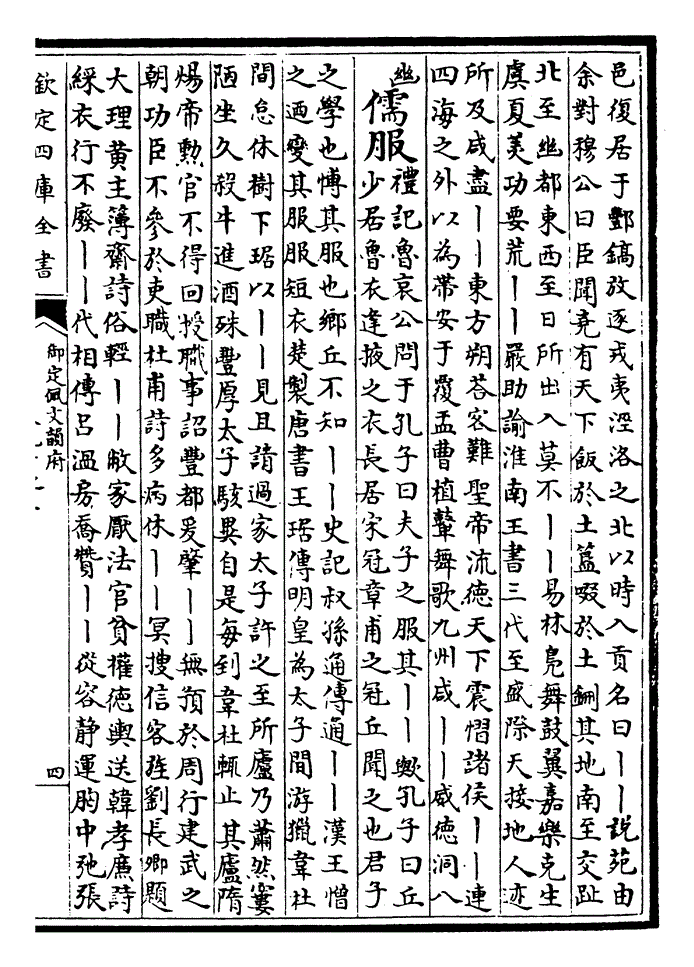 邑復居于酆鎬放逐戎夷涇洛之北以時入貢名曰丨丨說苑由
余對穆公曰臣聞堯有天下飯於土簋啜於土鉶其地南至交趾
北至幽都東西至日所出入莫不丨丨易林鳧舞鼓翼嘉樂堯生
虞夏美功要荒丨丨嚴助諭淮南王書三代至盛際天接地人迹
所及咸盡丨丨東方朔荅客難聖帝流德天下震慴諸侯丨丨連
四海之外以為帶安于覆盂曹植鼙舞歌九州咸丨丨威德洞八
幽
儒服
禮記魯哀公問于孔子曰夫子之服其丨丨與孔子曰丘
少居魯衣逢掖之衣長居宋冠章甫之冠丘聞之也君子
之學也愽其服也鄉丘不知丨丨史記叔孫通傳通丨丨漢王憎
之迺變其服服短衣楚製唐書王琚傳明皇為太子間游獵韋杜
間怠休樹下琚以丨丨見且請過家太子許之至所廬乃蕭然窶
陋坐久殺牛進酒殊豐厚太子駭異自是每到韋杜輒止其廬隋
煬帝勲官不得回授職事詔豐都爰肇丨丨無預於周行建武之
朝功臣不參於吏職杜甫詩多病休丨丨冥搜信客旌劉長卿題
大理黄主簿齋詩俗輕丨丨敝家厭法官貧權德輿送韓孝廉詩
綵衣行不廢丨丨代相傳吕温房喬贊丨丨從容静運胸中弛張
欽定四庫全書
御定佩文韻府
四